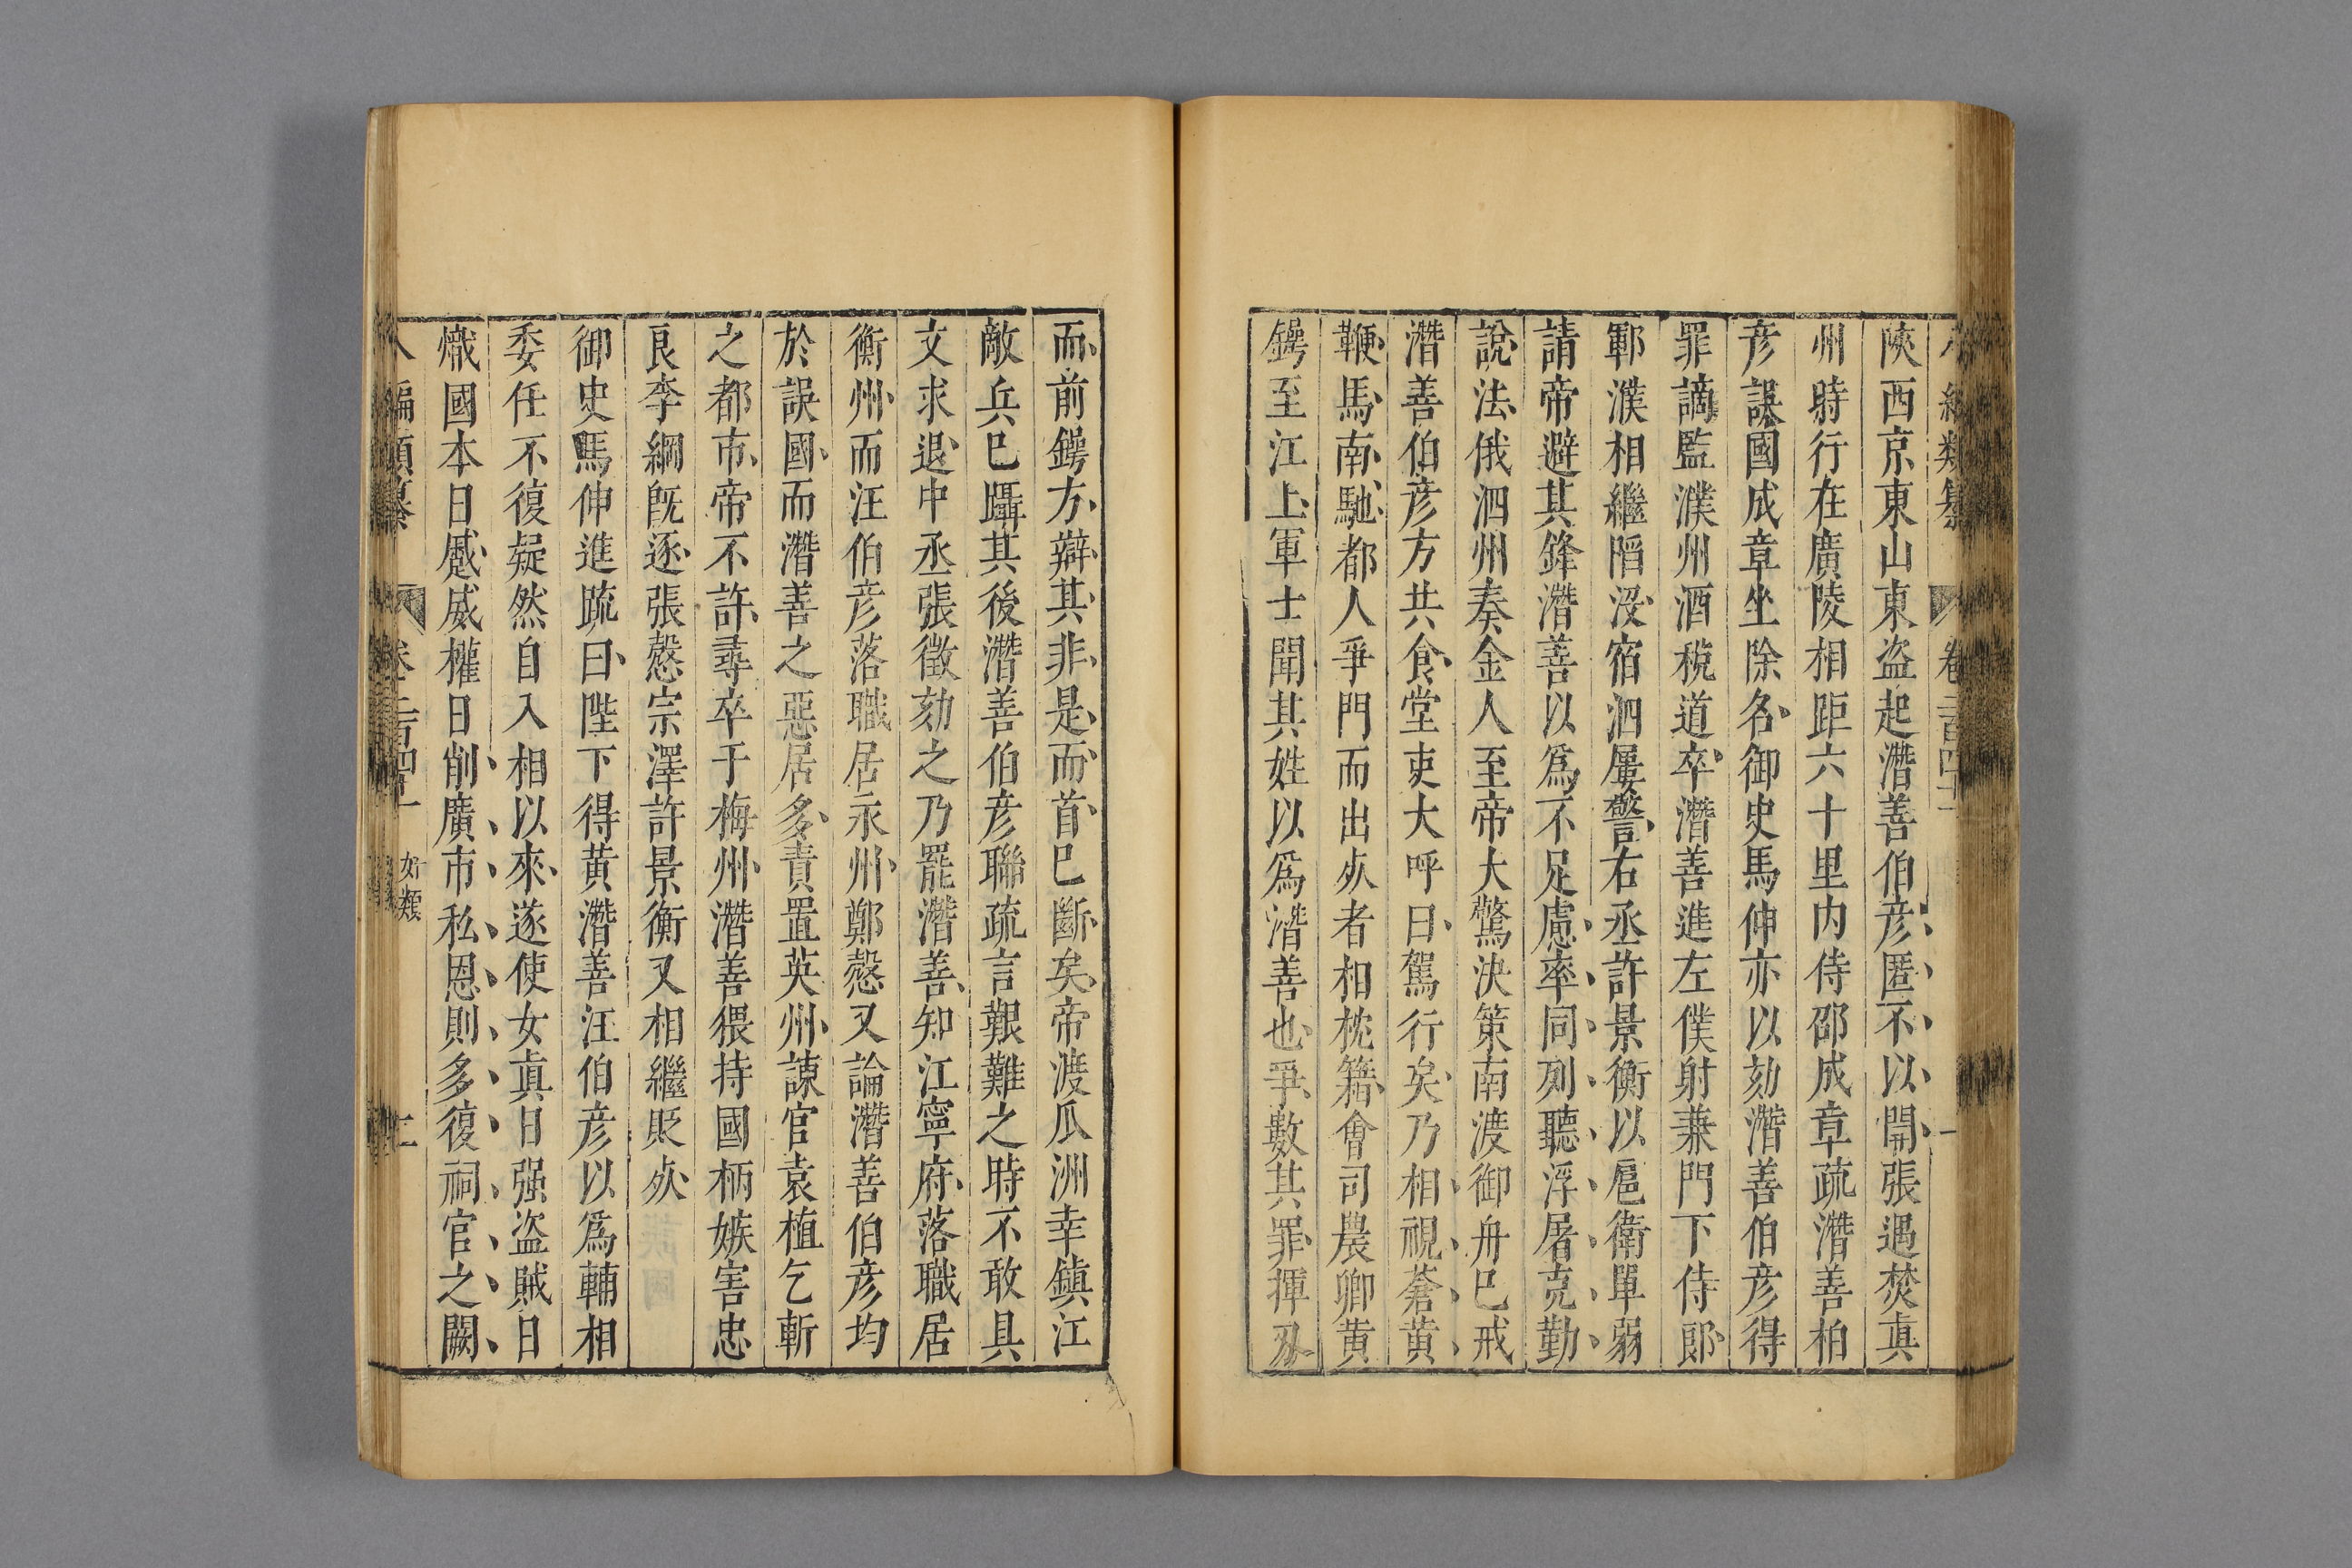 編類纂 卷二百四十二 一
陝西京東山東盜起潛善伯彥匿不以聞張遇焚真
州時行在廣陵相距六十里内侍邵成章疏潛善柏
彥誤國成章坐除名御史馬伸亦以劾潛善伯彥得
罪謫監濮州酒稅道卒潛善進左僕射兼門下侍郎
鄆濮相繼陷没宿泗屢警右丞許景衡以扈衛單弱
請帝避其鋒潛善以爲不足慮率同列聽浮屠克勤
說法俄泗州奏金人至帝大驚決策南渡御舟巳戒
潛善伯彥方共食堂吏大呼曰駕行矣乃相視蒼黃
鞭馬南馳都人爭門而出死者相枕籍會司農卿黃
鍔至江上軍士聞其姓以爲潛善也爭數其罪揮刃
而前鍔方辯其非是而首巳斷矣帝渡瓜洲幸鎮江
敵兵巳躡其後潛善伯彥聯疏言艱難之時不敢具
文求退中丞張徵劾之乃罷潛善知江寧府落職居
衡州而汪伯彥落職居永州鄭愨又論潛善伯彥均
於誤國而潛善之惡居多責置英州諫官袁植乞斬
之都市帝不許尋卒于梅州潛善猥持國柄嫉害忠
良李綱旣逐張愨宗澤許景衡又相繼貶死
御史馬伸進疏曰陛下得黃潛善汪伯彥以爲輔相
委任不復疑然自入相以來遂使女真日强盜賊日
熾國本日蹙威權日削廣市私恩則多復祠官之闕
八編類纂 卷二百四十二 奸類 二